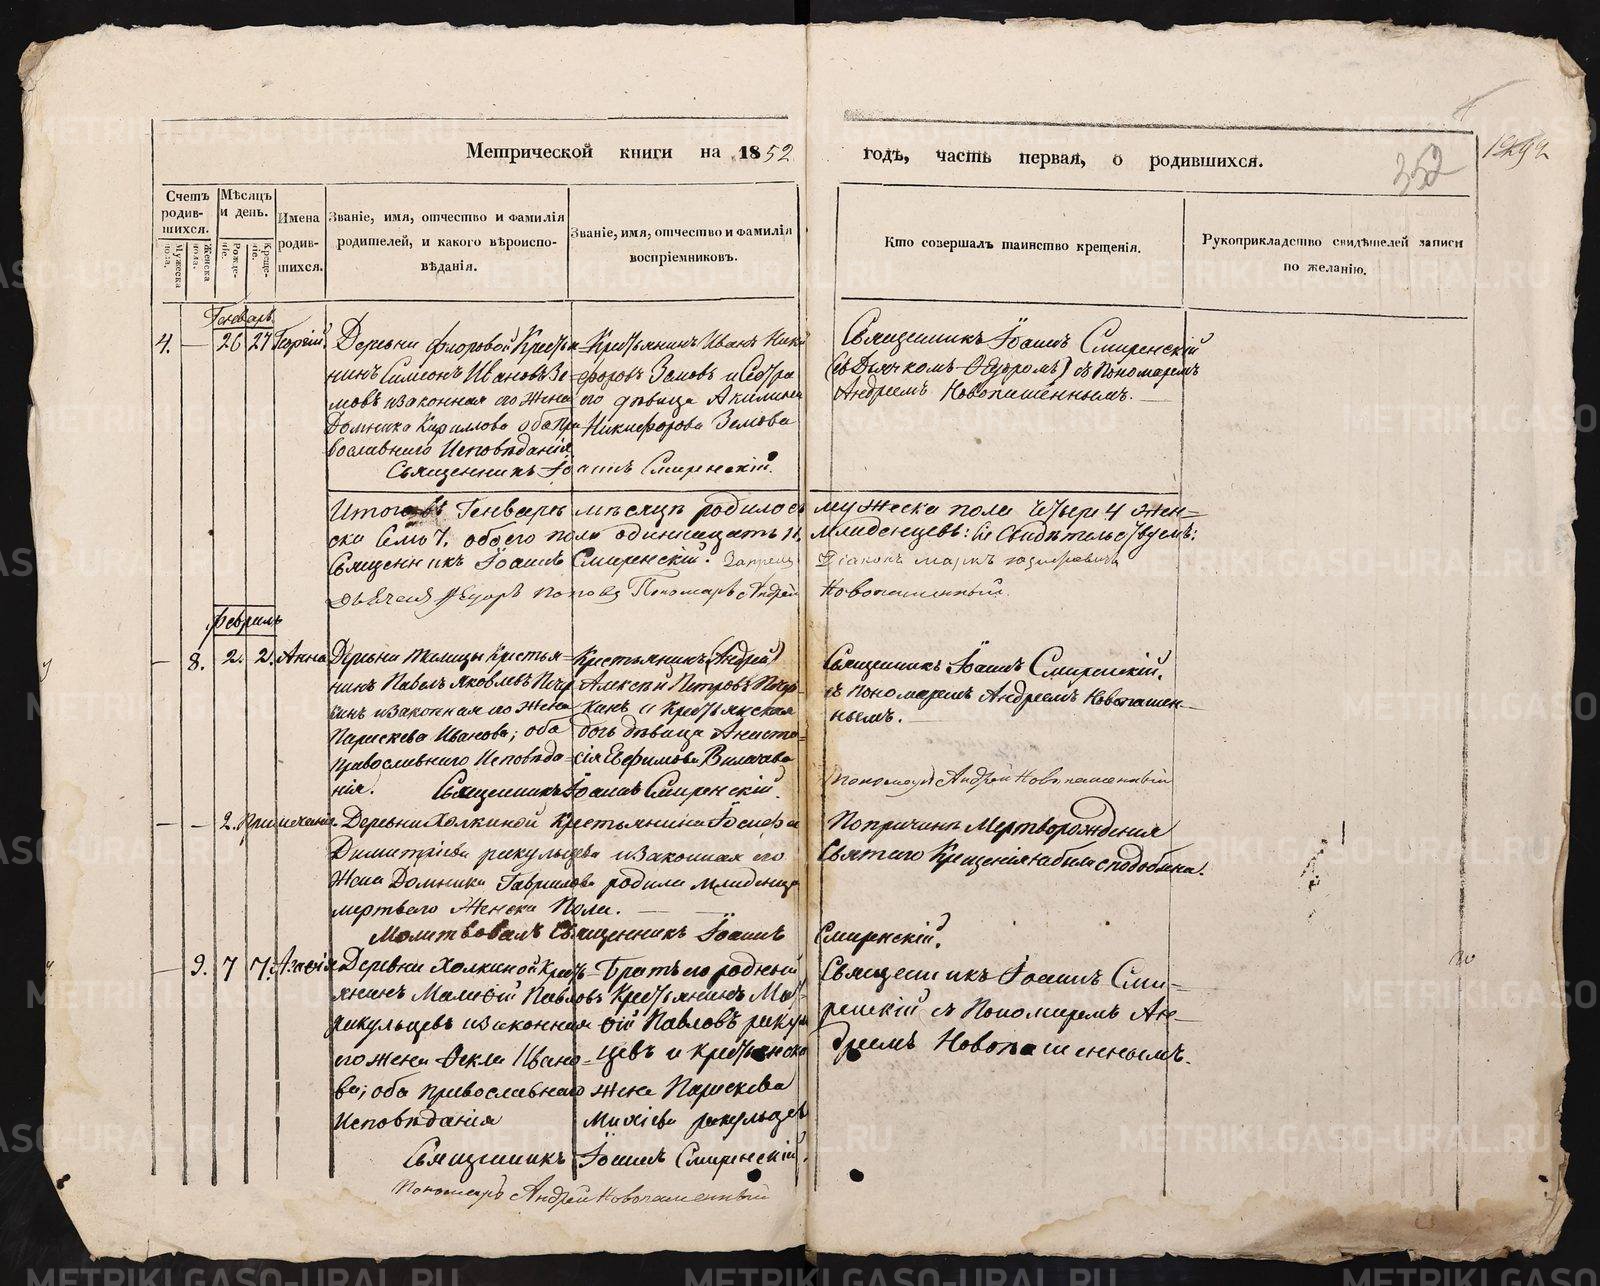 Метрической книги на 1852 годъ, часть первая, о родившихся.
352
Счетъ родив-шихся.
Мужеска пола.
Женска пола.
Мѣсяцъ и день.
Рожде-ніе.
Креще-ніе.
Имена родив-шихся.
Званіе, имя, отчество и фамилія родителей, и какого вѣроиспо-вѣданія.
Званіе, имя, отчество и фамилія воспріемниковъ.
Кто совершалъ таинство крещенія.
Рукоприкладство свидѣтелей записи по желанію.
Генварь
4. — 26 27 Георгій
Деревни Флоровой Крестья-
нинъ Симеонъ Ивановъ Зе-
мовъ и законная его жена
Домника Кирилова оба пра
вославнаго Исповѣданія
Крестьянинъ Иванъ Ники
форовъ Земовъ и Сестра
его дѣвица Акилина
Никифорова Земова
Священникъ Іоаннъ Смиренскій.
Священникъ Іоаннъ Смиренскій
(съ Дьячкомъ Ѳедоромъ) съ Пономаремъ
Андреемъ Новопашеннымъ.
Итого въ Генварѣ мѣсяцѣ родилось мужеска пола четыре 4 жен-
ска семь 7. обоего пола одиннадцать 11. младенцевъ: Въ Свидѣтельствуемъ:
Священникъ Іоаннъ Смиренскій. Діаконъ Маркъ
Ѳедоръ Поповъ Пономарь Андрей Новопашенный
Февраль
— 8. 2. 2. Анна
Деревни Талицы Крестья-
нинъ Павелъ Яковлевъ
и законная его жена
Параскева Иванова; оба
Православнаго Исповѣда-
нія.
Крестьянинъ (Андрей)
Алексѣй Петровъ
и Крестьянская
дочь дѣвица Анаста-
сія Евфимова
Священникъ Іоаннъ Смиренскій.
Священникъ Іоаннъ Смиренскій,
съ пономаремъ Андреемъ Новопашен-
нымъ.
Пономарь Андрей Новопашенный
— — 2. Примѣчаніе.
Деревни Холкиной Крестьянина Іосифа
Димитріева Ракульцева и законная его
жена Домника Гаврилова родила младенца
мертваго женска пола.
Молитвовалъ Священникъ Іоаннъ Смиренскій.
По причинѣ Мерторожденія
Святаго Крещенія не была сподоблена.
— 9. 7 7. Агафія
Деревни Холкиной Кресть-
янинъ Павловъ
Ракульцевъ и законная
его жена Ѳекла Ивано-
ва; оба Православнаго
Исповѣданія
Братъ его родный
Крестьянинъ Мат-
ѳій Павловъ Ракуль
цевъ и Крестьянска
жена Параскева
Михіева Ракульцев
Священникъ Іоаннъ Смиренскій.
Пономарь Андрей Новопашенный
Священникъ Іоаннъ Сми-
ренскій съ Пономаремъ Ан-
дреемъ Новопашеннымъ.
METRIKI.GASO-URAL.RU